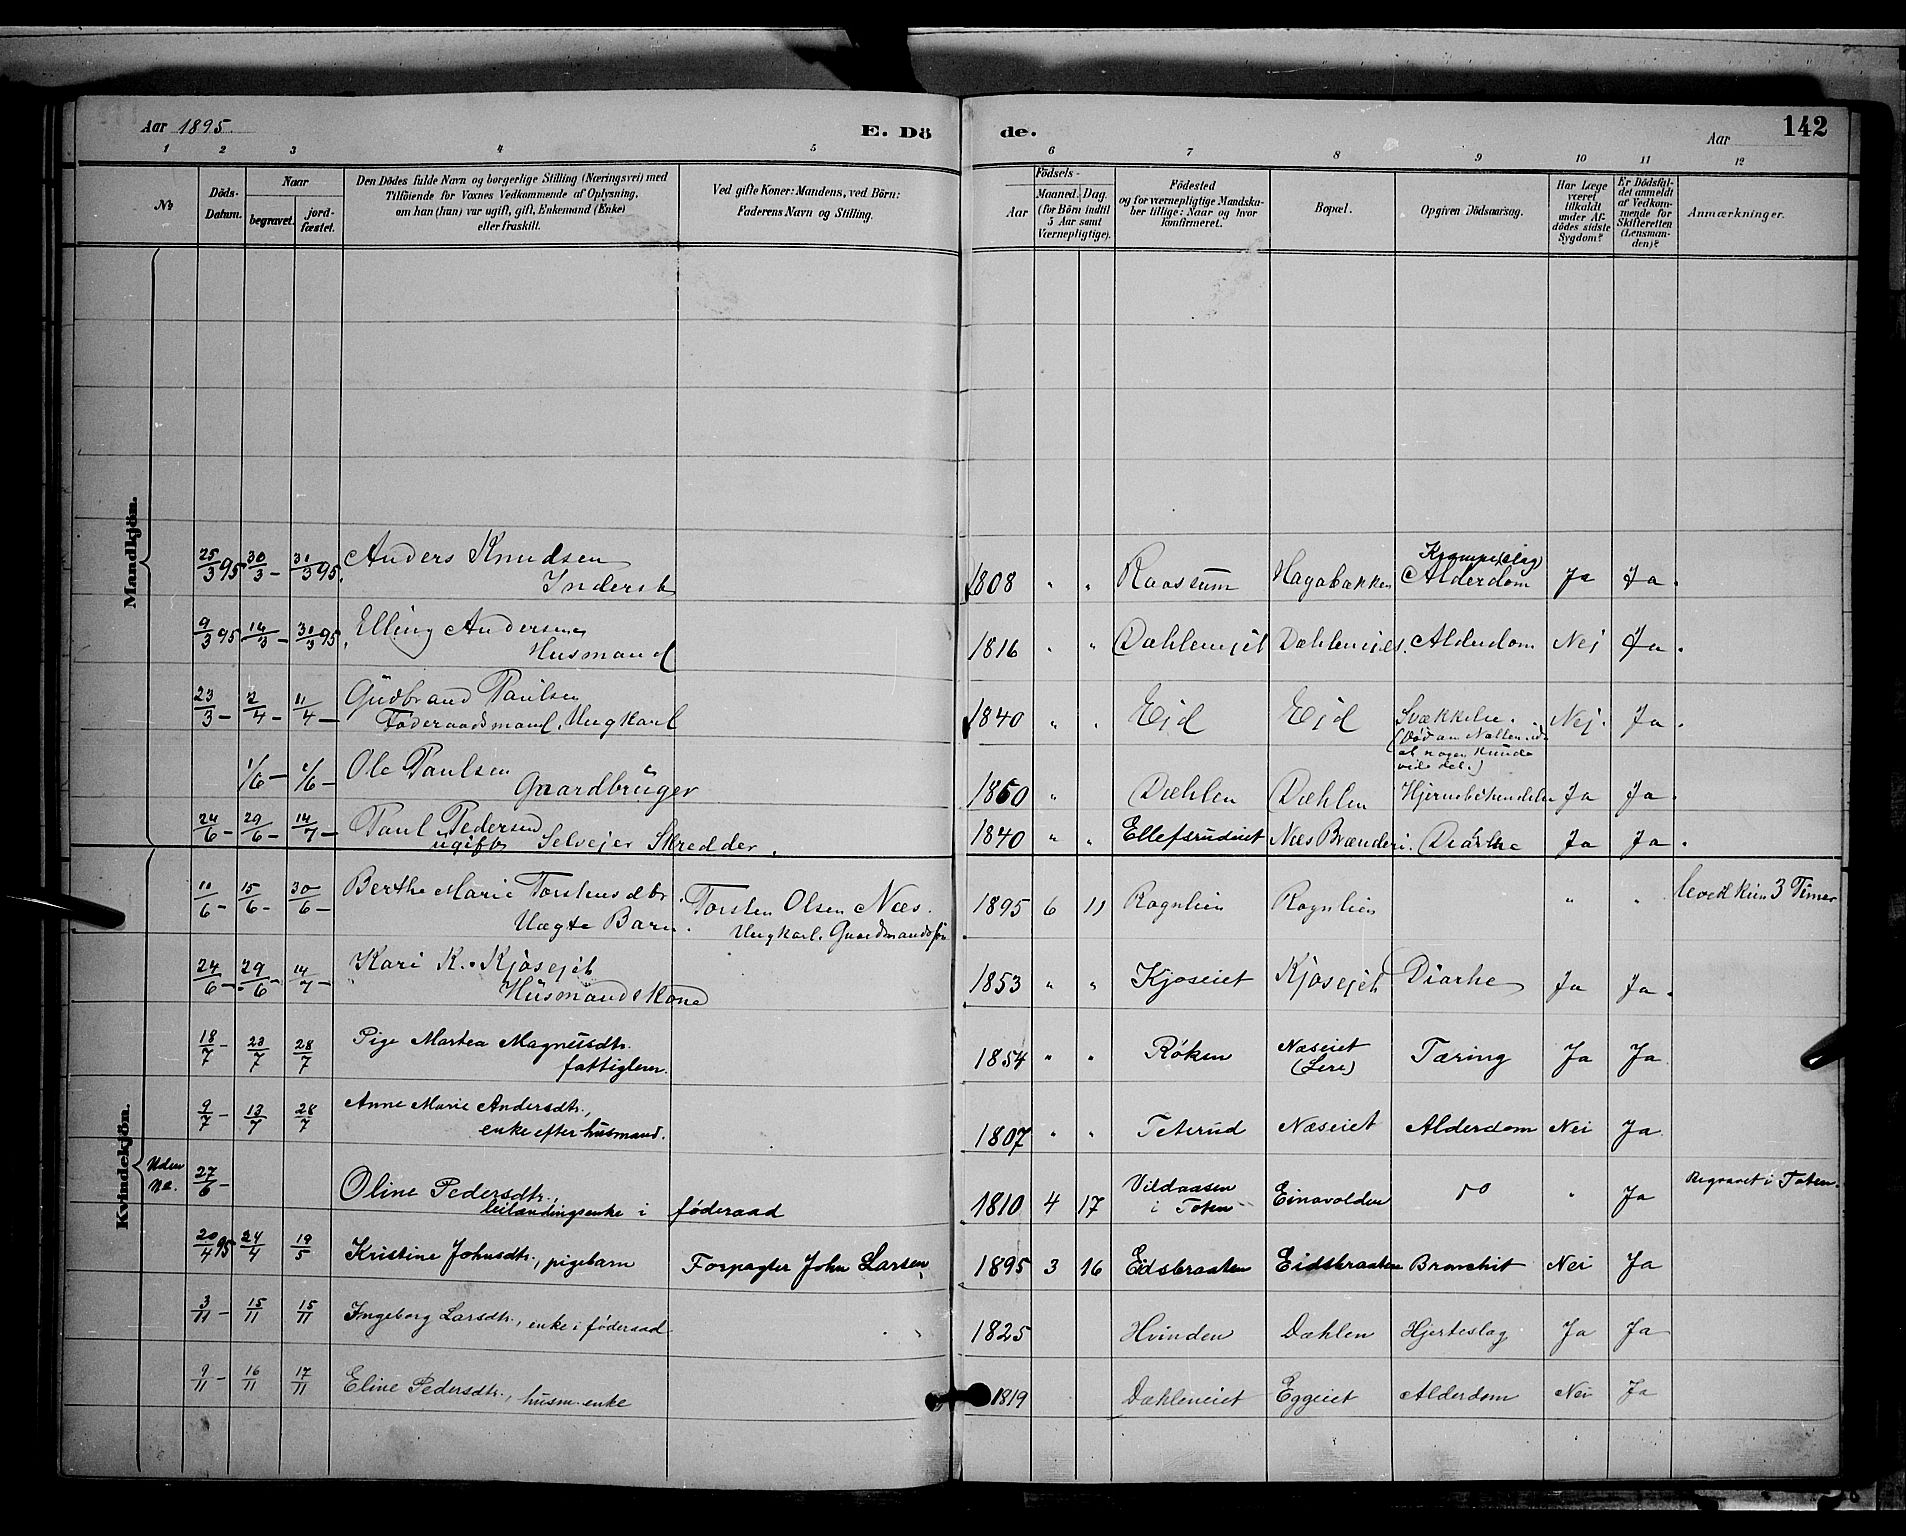 Aar 1895. E. Dö de. Aar 142
1 2 3 4 5 6 7 8 9 10 11 12
№
Döds-Datum.
Naar
begravet. jord-fæstet.
Den Dödes fulde Navn og borgerlige Stilling (Næringsvei) med
Tilföiende for Voxnes Vedkommende af Oplysning,
om han (hun) var ugift, gift, Enkemand (Enke)
eller fraskilt.
Ved gifte Koner: Mandens, ved Börn:
Faderens Navn og Stilling.
Födsels-
Aar Maaned. Dag.
(for Börn indtil
5 Aar samt
Værnepligtige).
Födested
og for værnepligtige Mandska-
ber tillige: Naar og hvor
konfirmeret.
Bopæl.
Opgiven Dödsaarsag.
Har Læge
været
tilkaldt
under Af-
dödes sidste
Sygdom?
Er Dödsfal-
det anmeldt
af Vedkom-
mende for
Skifteretten
(Lensman-
den)?
Anmærkninger.
Mandkjön.
25/3 95 30/3 - 31/3 95. Anders Knudsen
Inderst 1808 " " Raassum Hagabakken Krampe(slag) Alderdom Ja Ja.
9/3 95 14/3 - 31/3 95. Elling Andersen
Husmand 1816 " " Dæhlenejet Dæhlenejet. Alderdom Nej Ja.
23/3 - 2/4 - 11/4 - Gudbrand Paulsen
Føderaadsmand, Ungkarl 1840 " " Ejd Ejd Svækkelse. Nej. Ja.
(Død om Natten
at nogen Kunde
vide det.)
1/6 - 2/6 - Ole Paulsen
Gaardbruger 1860 " Dæhlen Dæhlen Ja Ja.
24/6 - 29/6 - 14/7 - Paul Pedersen
ugift Selvejer Skredder. 1840 " " Ellefsrudeiet Næs Brænderi. Diarhe Ja Ja.
Kvindekjön.
11/6 - 15/6 - 30/6 - Berthe Marie Torstensdtr
Uægte Barn. Torsten Olsen Næs.
Ungkarl. Gaardmandssøn 1895 6 11 Rognlien Rognlien " " leved kun 3 Timer
24/6 - 29/6 - 14/7 - Kari K. Kjøsejet
Husmandskone 1853 " " Kjøseiet Kjøsejet Diarhe Ja Ja.
18/7 - 23/7 28/7 Pige Martea Magnusdtr.
fattiglem. 1854 " " Røken Næseiet Tæring Ja Ja
9/7 - 13/7 28/7 Anne Marie Andersdtr.,
enke efter husmand. 1807 " " Teterud Næseiet Alderdom Nei Ja
Uden
No. 27/6 - Oline Pedersdtr.,
leilændingsenke i føderaad 1810 4 17 Vildaasen
i Toten Einavolden do " Ja Begravet i Toten.
20/4 95 24/4 19/5 Kristine Johnsdtr., pigebarn Forpagter John Larsen 1895 3 16 Eidsbraaten Eidsbraaten Bronchit Nei Ja
3/11 - 15/11 15/11 Ingeborg Larsdtr., enke i føderaad 1825 Hvinden Dæhlen Hjerteslag Ja Ja
9/11 - 16/11 17/11 Eline Pedersdtr., husm. enke 1819 Dæhleneiet Eggeiet Alderdom Nei Ja